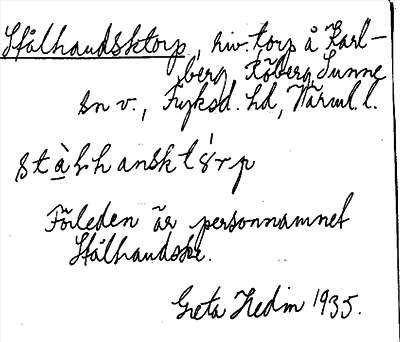 Stålhandsktorp, riv. torp å Karl-
berg, Röberg, Sunne
sn v., Fryksd. hd, Värml. l.
stà̱lhansktórp
Förleden är personnamnet
Stålhandske.
Greta Hedin 1935.